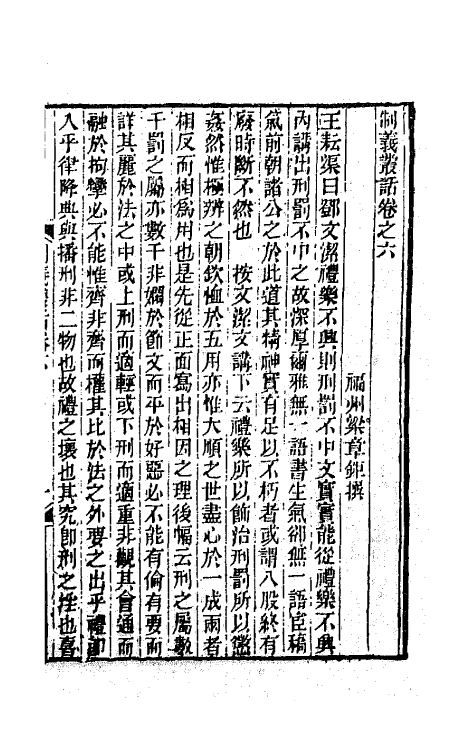 制義叢話卷之六
福州梁章鉅撰
王耘渠曰鄧文潔禮樂不興則刑罰不中文實實能從禮樂不興
內講出刑罰不中之故深厚爾雅無一語書生氣卻無一語宦稿
氣前朝諸公之於此道其精神實有足以不朽者或謂八股終有
廢時斷不然也　按文潔文講下云禮樂所以飾治刑罰所以懲
姦然惟極辨之朝欽恤於五用亦惟大順之世盡心於一成兩者
相反而相為用也是先從正面寫出相因之理後幅云刑之屬數
千罰之屬亦數千非嫺於節文而平於好惡必不能有倫有要而
詳其麗於法之中或上刑而適輕或下刑而適重非觀其會通而
融於拘攣必不能惟齊非齊而權其比於法之外要之出乎禮卽
入乎律降典與播刑非二物也故禮之壞也其究卽刑之淫也喜